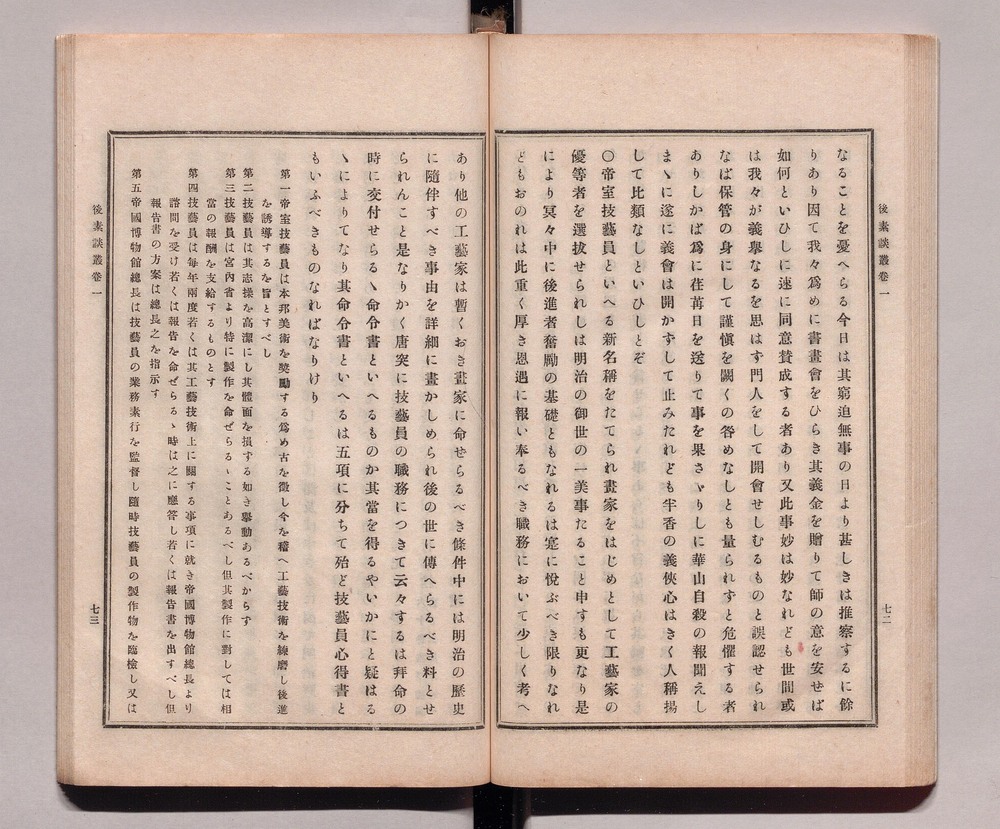 後素談叢卷一
七二
なることを憂へらる今日は其窮追無事の日より甚しきは推察するに餘
りあり因て我々爲めに書畫會をひらき其義金を贈りて師の意を安せば
如何といひしに速に同意賛成する者あり又此事妙は妙なれども世間或
は我々が義擧なるを思はす門人をして開會せしむるものと誤認せられ
なば保管の身にして謹愼を闕くの咎めなしとも量られすと危懼する者
ありしかば爲に荏苒日を送りて事を果さゝりしに華山自殺の報聞えし
まゝに遂に義會は開かすして止みたれども半香の義俠心はきく人稱揚
して比類なしといひしとぞ
〇帝室技藝員といへる新名稱をたてられ畫家をはじめとして工藝家の
優等者を選拔せられしは明治の御世の一美事たること申すも更なり是
により冥々中に後進者奮勵の基礎ともなれるは寔に悅ぶべき限りなれ
どもおのれは此重く厚き恩遇に報い奉るべき職務において少しく考へ
あり他の工藝家は暫くおき畫家に命せらるべき條件中には明治の歷史
に隨伴すべき事由を詳細に畫かしめられ後の世に傳へらるべき料とせ
られんこと是なりかく唐突に技藝員の職務につきて云々するは拜命の
時に交付せらるゝ命令書といへるものか其當を得るやいかにと疑はる
ゝによりてなり其命令書といへるは五項に分ちて殆ど技藝員心得書と
もいふべきものなればなりけり
第一帝室技藝員は本邦美術を奬勵する爲め古を徵し今を稽へ工藝技術を練磨し後進
を誘導するを旨とすべし
第二技藝員は其志操を高潔にし其體面を損する如き擧動あるべからず
第三技藝員は宮內省より特に製作を命ぜらるゝことあるべし但其製作に對しては相
當の報酬を支給するものとす
第四技藝員は每年兩度若くは其工藝技術上に關する事項に就き帝國博物館總長より
諮問を受け若くは報告を命ぜらるゝ時は之に應答し若くは報告書を出すべし但
報告書の方案は總長之を指示す
第五帝國博物館總長は技藝員の業務素行を監督し隨時技藝員の製作物を臨檢し又は
後素談叢卷一
七三